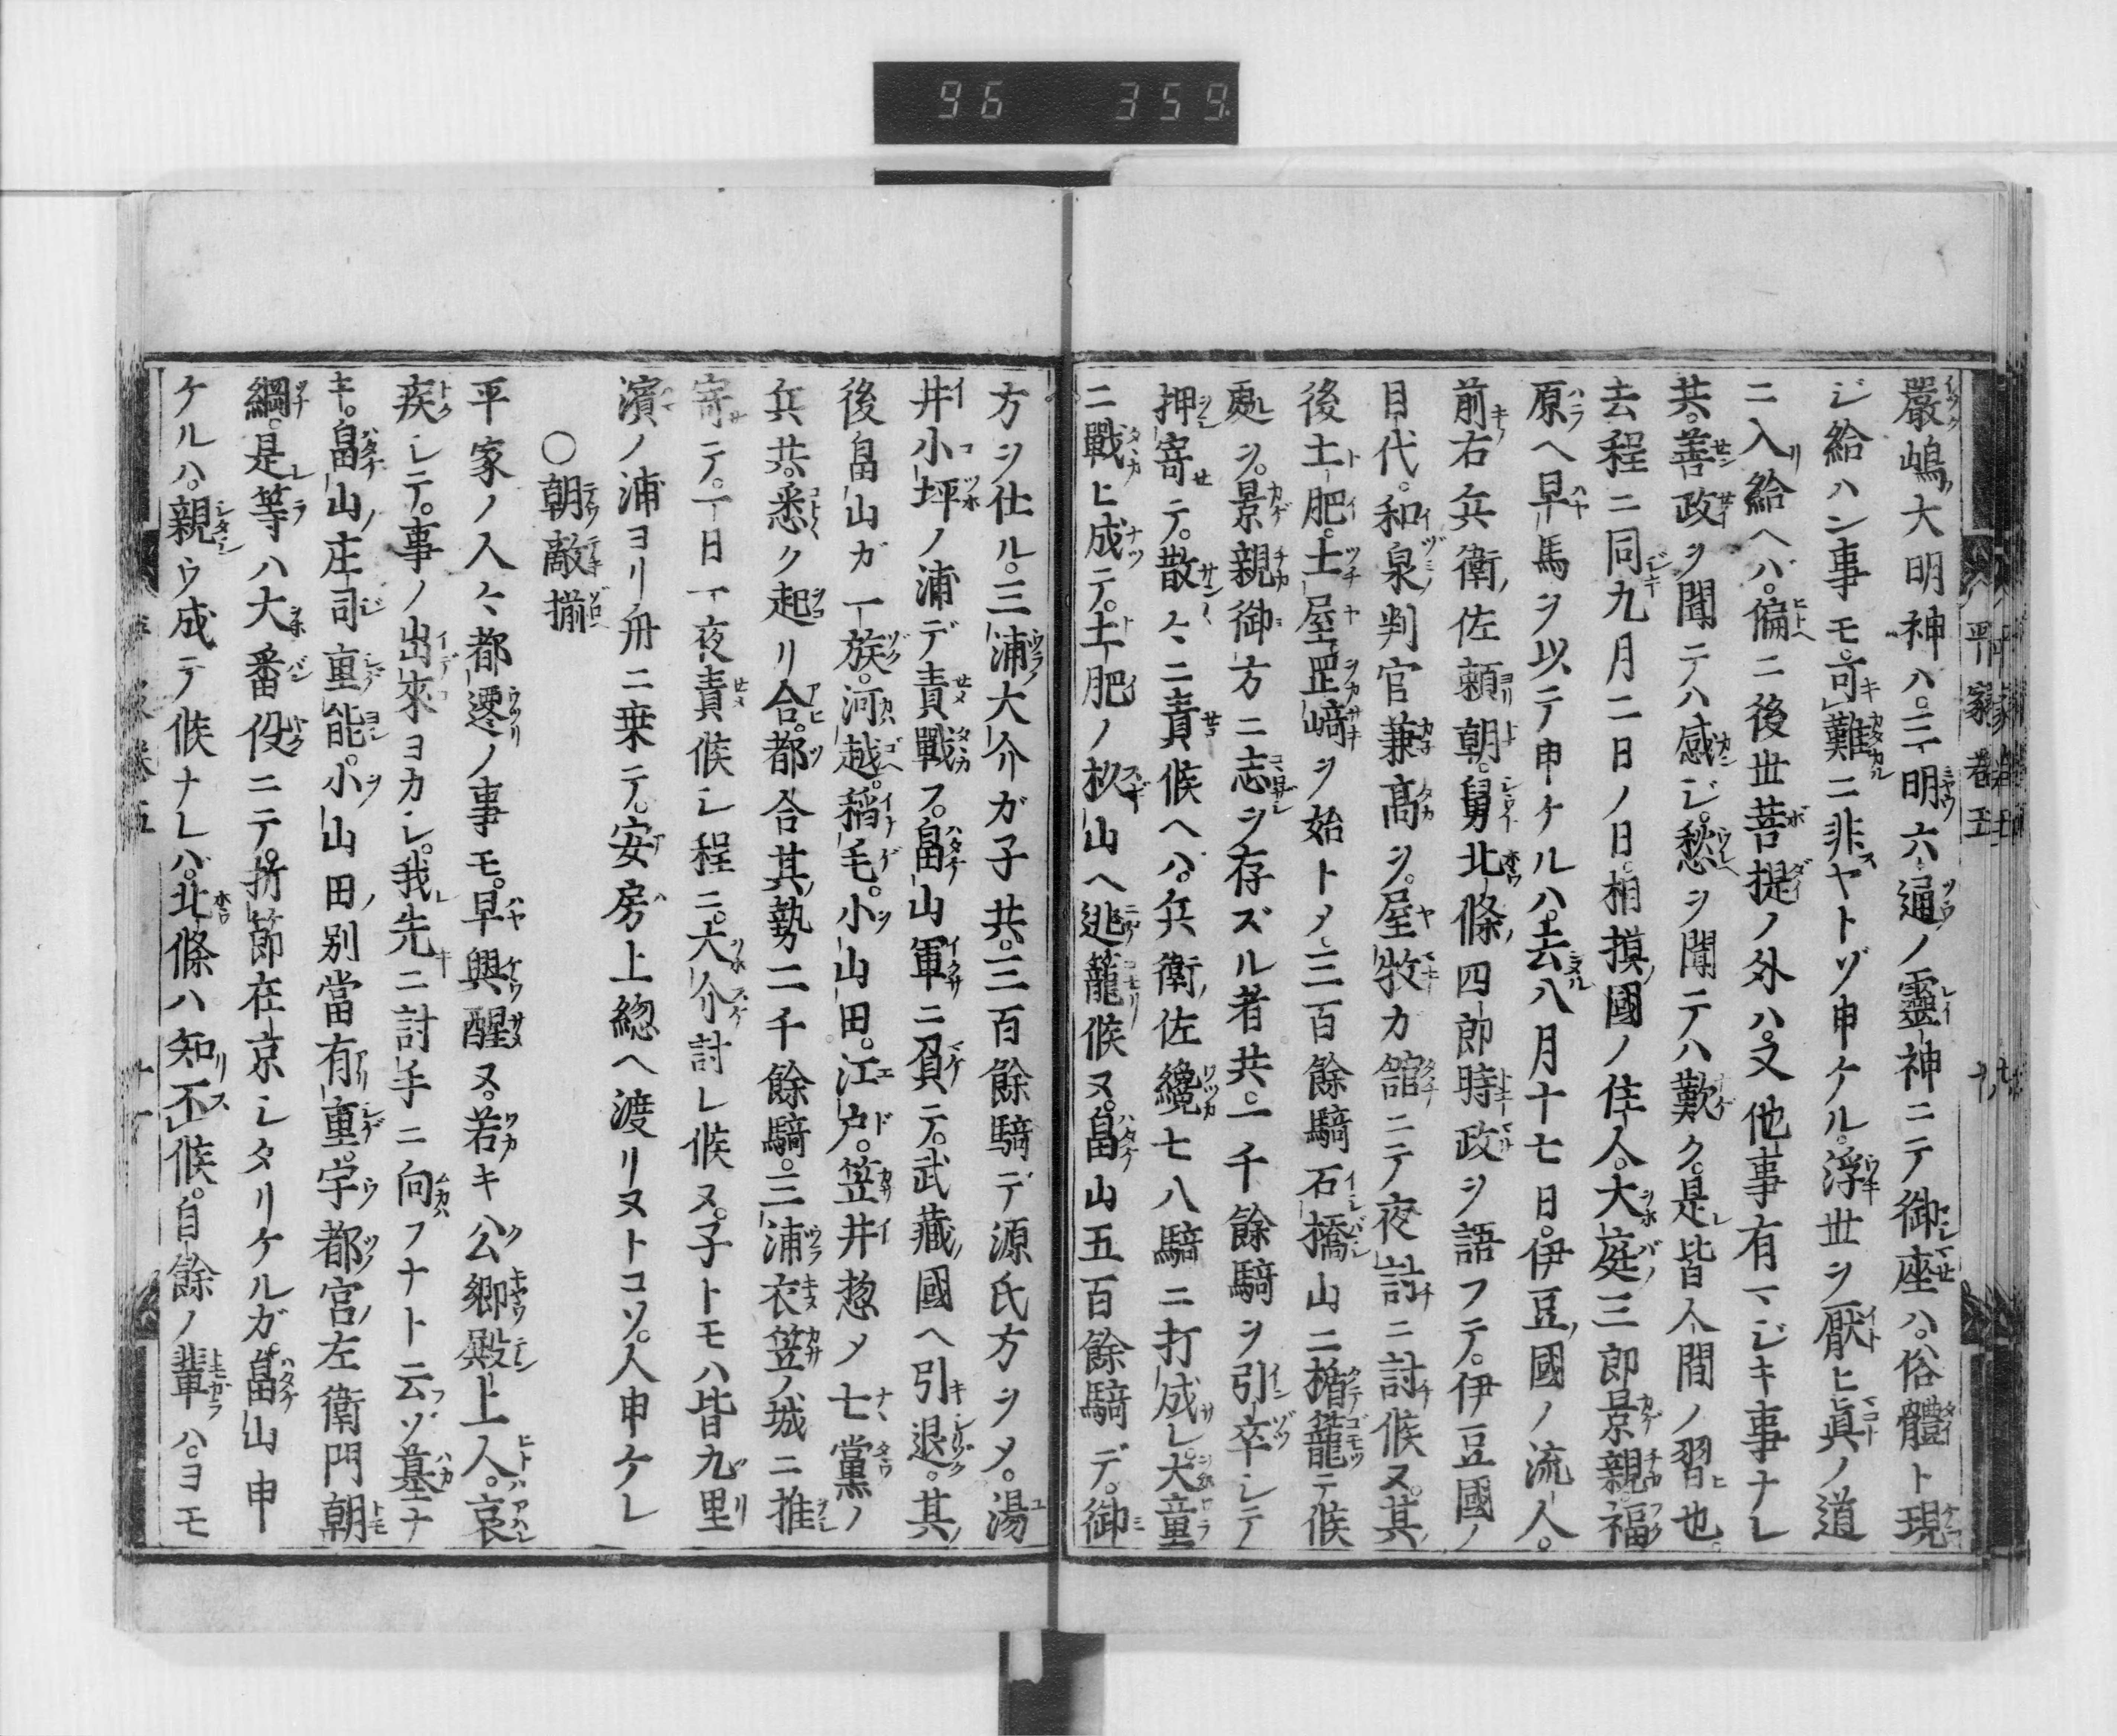 96 359
嚴嶋大明神ハ。三明六通ノ靈神ニテ御座ハ。俗體ト現
ジ給ハン事モ。可難ニ非ヤトゾ申ケル。浮世ヲ厭ヒ眞ノ道
ニ入給ヘバ。偏ニ後世菩提ノ外ハ。又他事有マジキ事ナレ
共。善政ヲ聞テハ感ジ。愁ヲ聞テハ歎ク。是皆人間ノ習也。
去程ニ同九月二日ノ日。相摸國ノ住人。大庭三郎景親。福
原ヘ早馬ヲ以テ申ケルハ。去八月十七日。伊豆國ノ流人。
前右兵衛佐頼朝。舅北條四郎時政ヲ語フテ。伊豆國ノ
目代。和泉判官兼高ヲ。屋牧カ舘ニテ夜討ニ討候ヌ。其
後土肥。土屋罡﨑ヲ始トメ。三百餘騎石橋山ニ楯籠テ候
處ヲ。景親御方ニ志ヲ存ズル者共。一千餘騎ヲ引卒シテ
押寄テ。散々ニ責候ヘハ。兵衛佐纔七八騎ニ打成レ。大童
ニ戰ヒ成テ。土肥ノ杦山ヘ逃籠候ヌ。畠山五百餘騎デ。御
方ヲ仕ル。三浦大介ガ子共。三百餘騎デ源氏方ヲメ。湯
井小坪ノ浦デ責戰フ。畠山軍ニ負テ。武藏國ヘ引退。其
後畠山ガ一族。河越。稻毛。小山田。江戸。笠井惣メ七黨ノ
兵共。悉ク起リ合。都合其勢二千餘騎。三浦衣笠ノ城ニ推
寄テ。一日一夜責候シ程ニ。大介討レ候ヌ。子トモハ皆九里
濱ノ浦ヨリ舟ニ乗テ。安房上総ヘ渡リヌトコソ。人申ケレ
〇朝敵揃
平家ノ人々都遷ノ事モ。早興醒ヌ。若キ公卿殿上人。哀
疾シテ。事ノ出來ヨカシ。我先ニ討手ニ向フナト云ゾ墓ナ
キ。畠山庄司重能。小山田別當有重。宇都宮左衛門朝
綱。是等ハ大番役ニテ。折節在京シタリケルガ。畠山申
ケルハ。親ウ成テ候ナレバ。北條ハ知不候。自餘ノ輩ハ。ヨモ